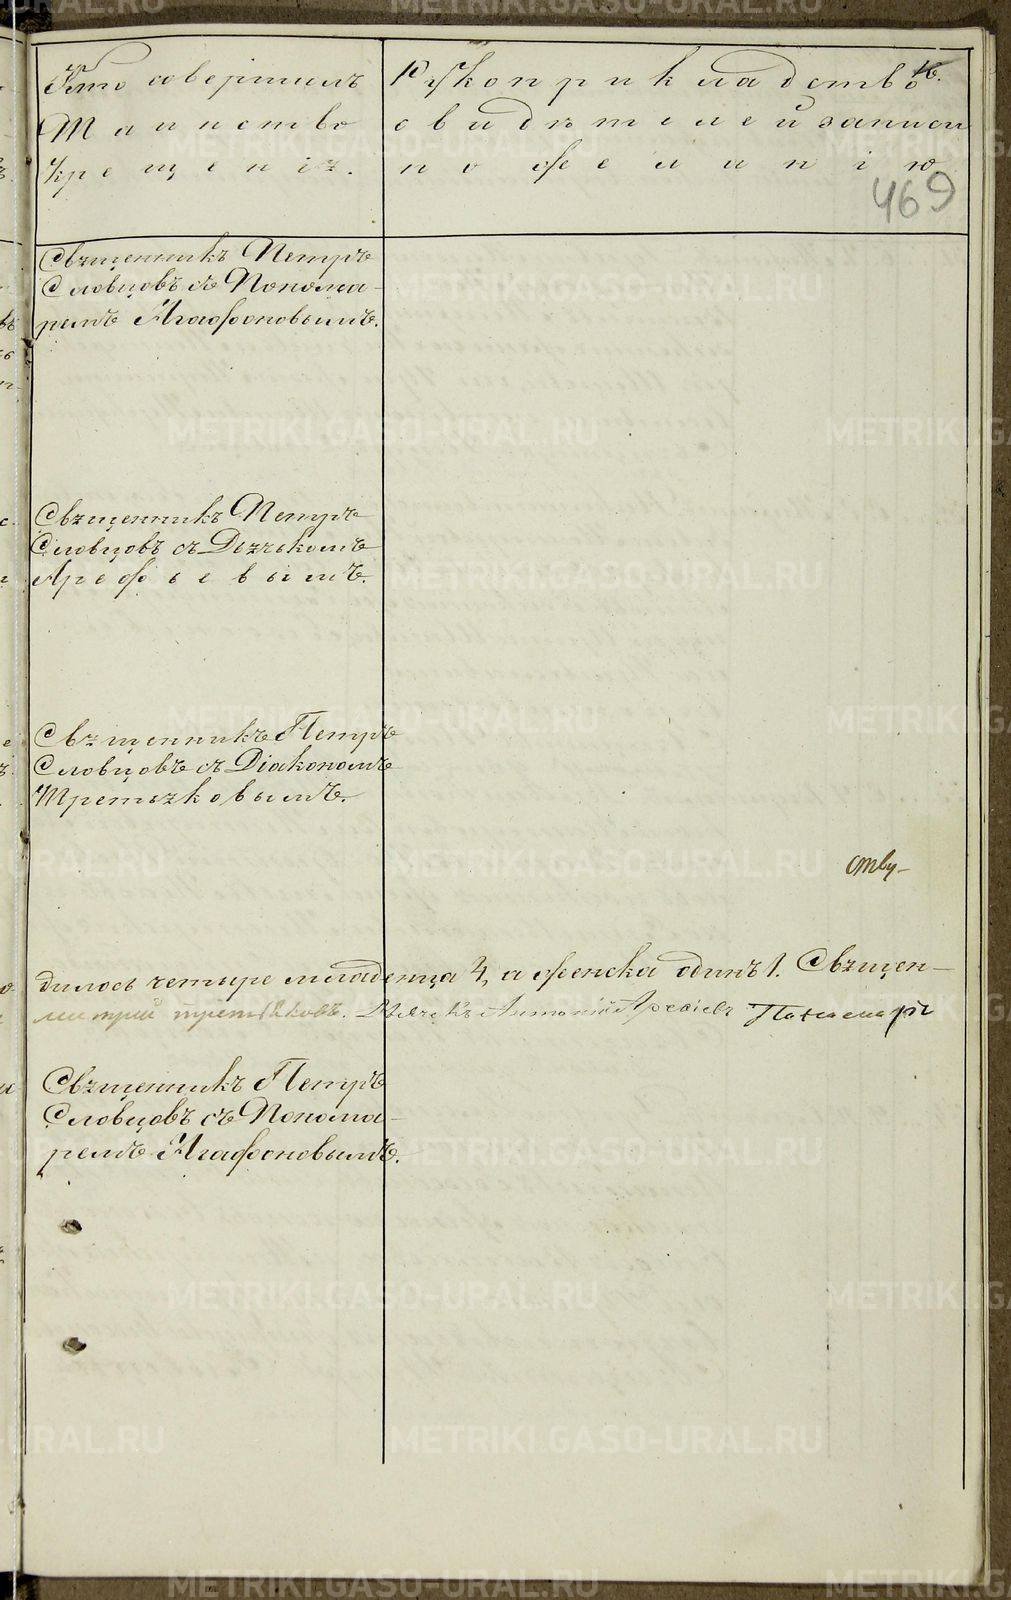 Кто совершилъ
Таинство
Крещенія.
Рукоприкладство
свидѣтелей записи
по желанію
16.
469
Священникъ Петръ
Словцовъ съ Понома-
ремъ Агафоновымъ.
Священникъ Петръ
Словцовъ съ Дьячкомъ
Арефьевымъ.
Священникъ Петръ
Словцовъ съ Діакономъ
Третьяковымъ.
ству-
дилось четыре младенца 4, а женска одинъ 1. Священ-
митрій Третьяковъ. Дьячекъ Антоній Арефіевъ Пономарь
Священникъ Петръ
Словцовъ съ Понома-
ремъ Агафоновымъ.
METRIKI.GASO-URAL.RU